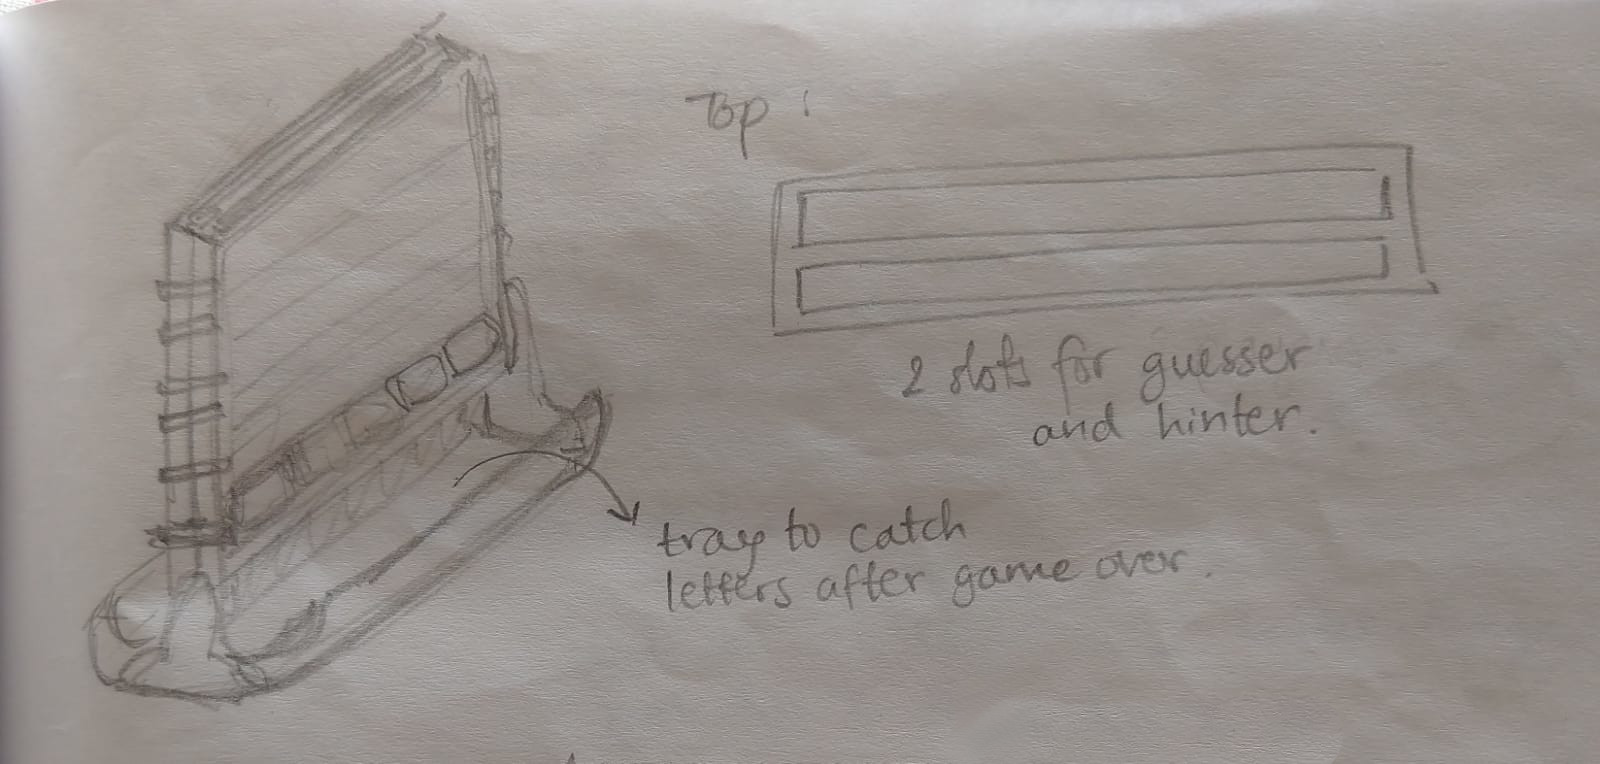 Top :
2 slots for guesser
and hinter.
tray to catch
letters after game over.